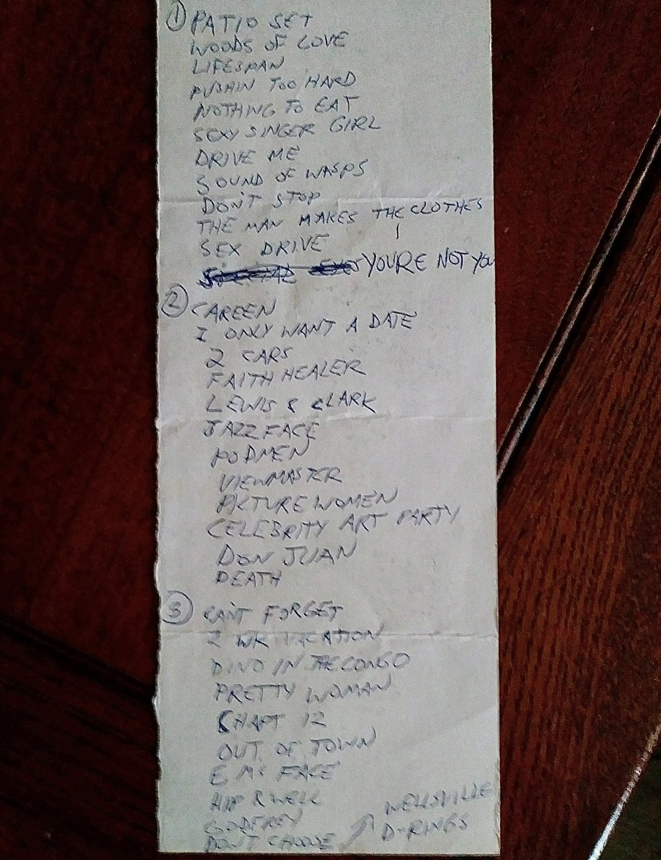 ① PATIO SET
WOODS OF LOVE
LIFESPAN
PUSHIN TOO HARD
NOTHING TO EAT
SEXY SINGER GIRL
DRIVE ME
SOUND OF WASPS
DON'T STOP
THE MAN MAKES THE CLOTHES
SEX DRIVE
YOU'RE NOT YOU
② CAREEN
I ONLY WANT A DATE
2 CARS
FAITH HEALER
LEWIS & CLARK
JAZZ FACE
PODMEN
VIEWMASTER
PICTURE WOMEN
CELEBRITY ART PARTY
DON JUAN
DEATH
③ CAN'T FORGET
2 WK VACATION
DINO IN THE CONGO
PRETTY WOMAN
CHAPT 12
OUT OF TOWN
E Mc FACE
HIP & WELL
GODFREY
DON'T CHOOSE
WELLSVILLE
D-RINGS